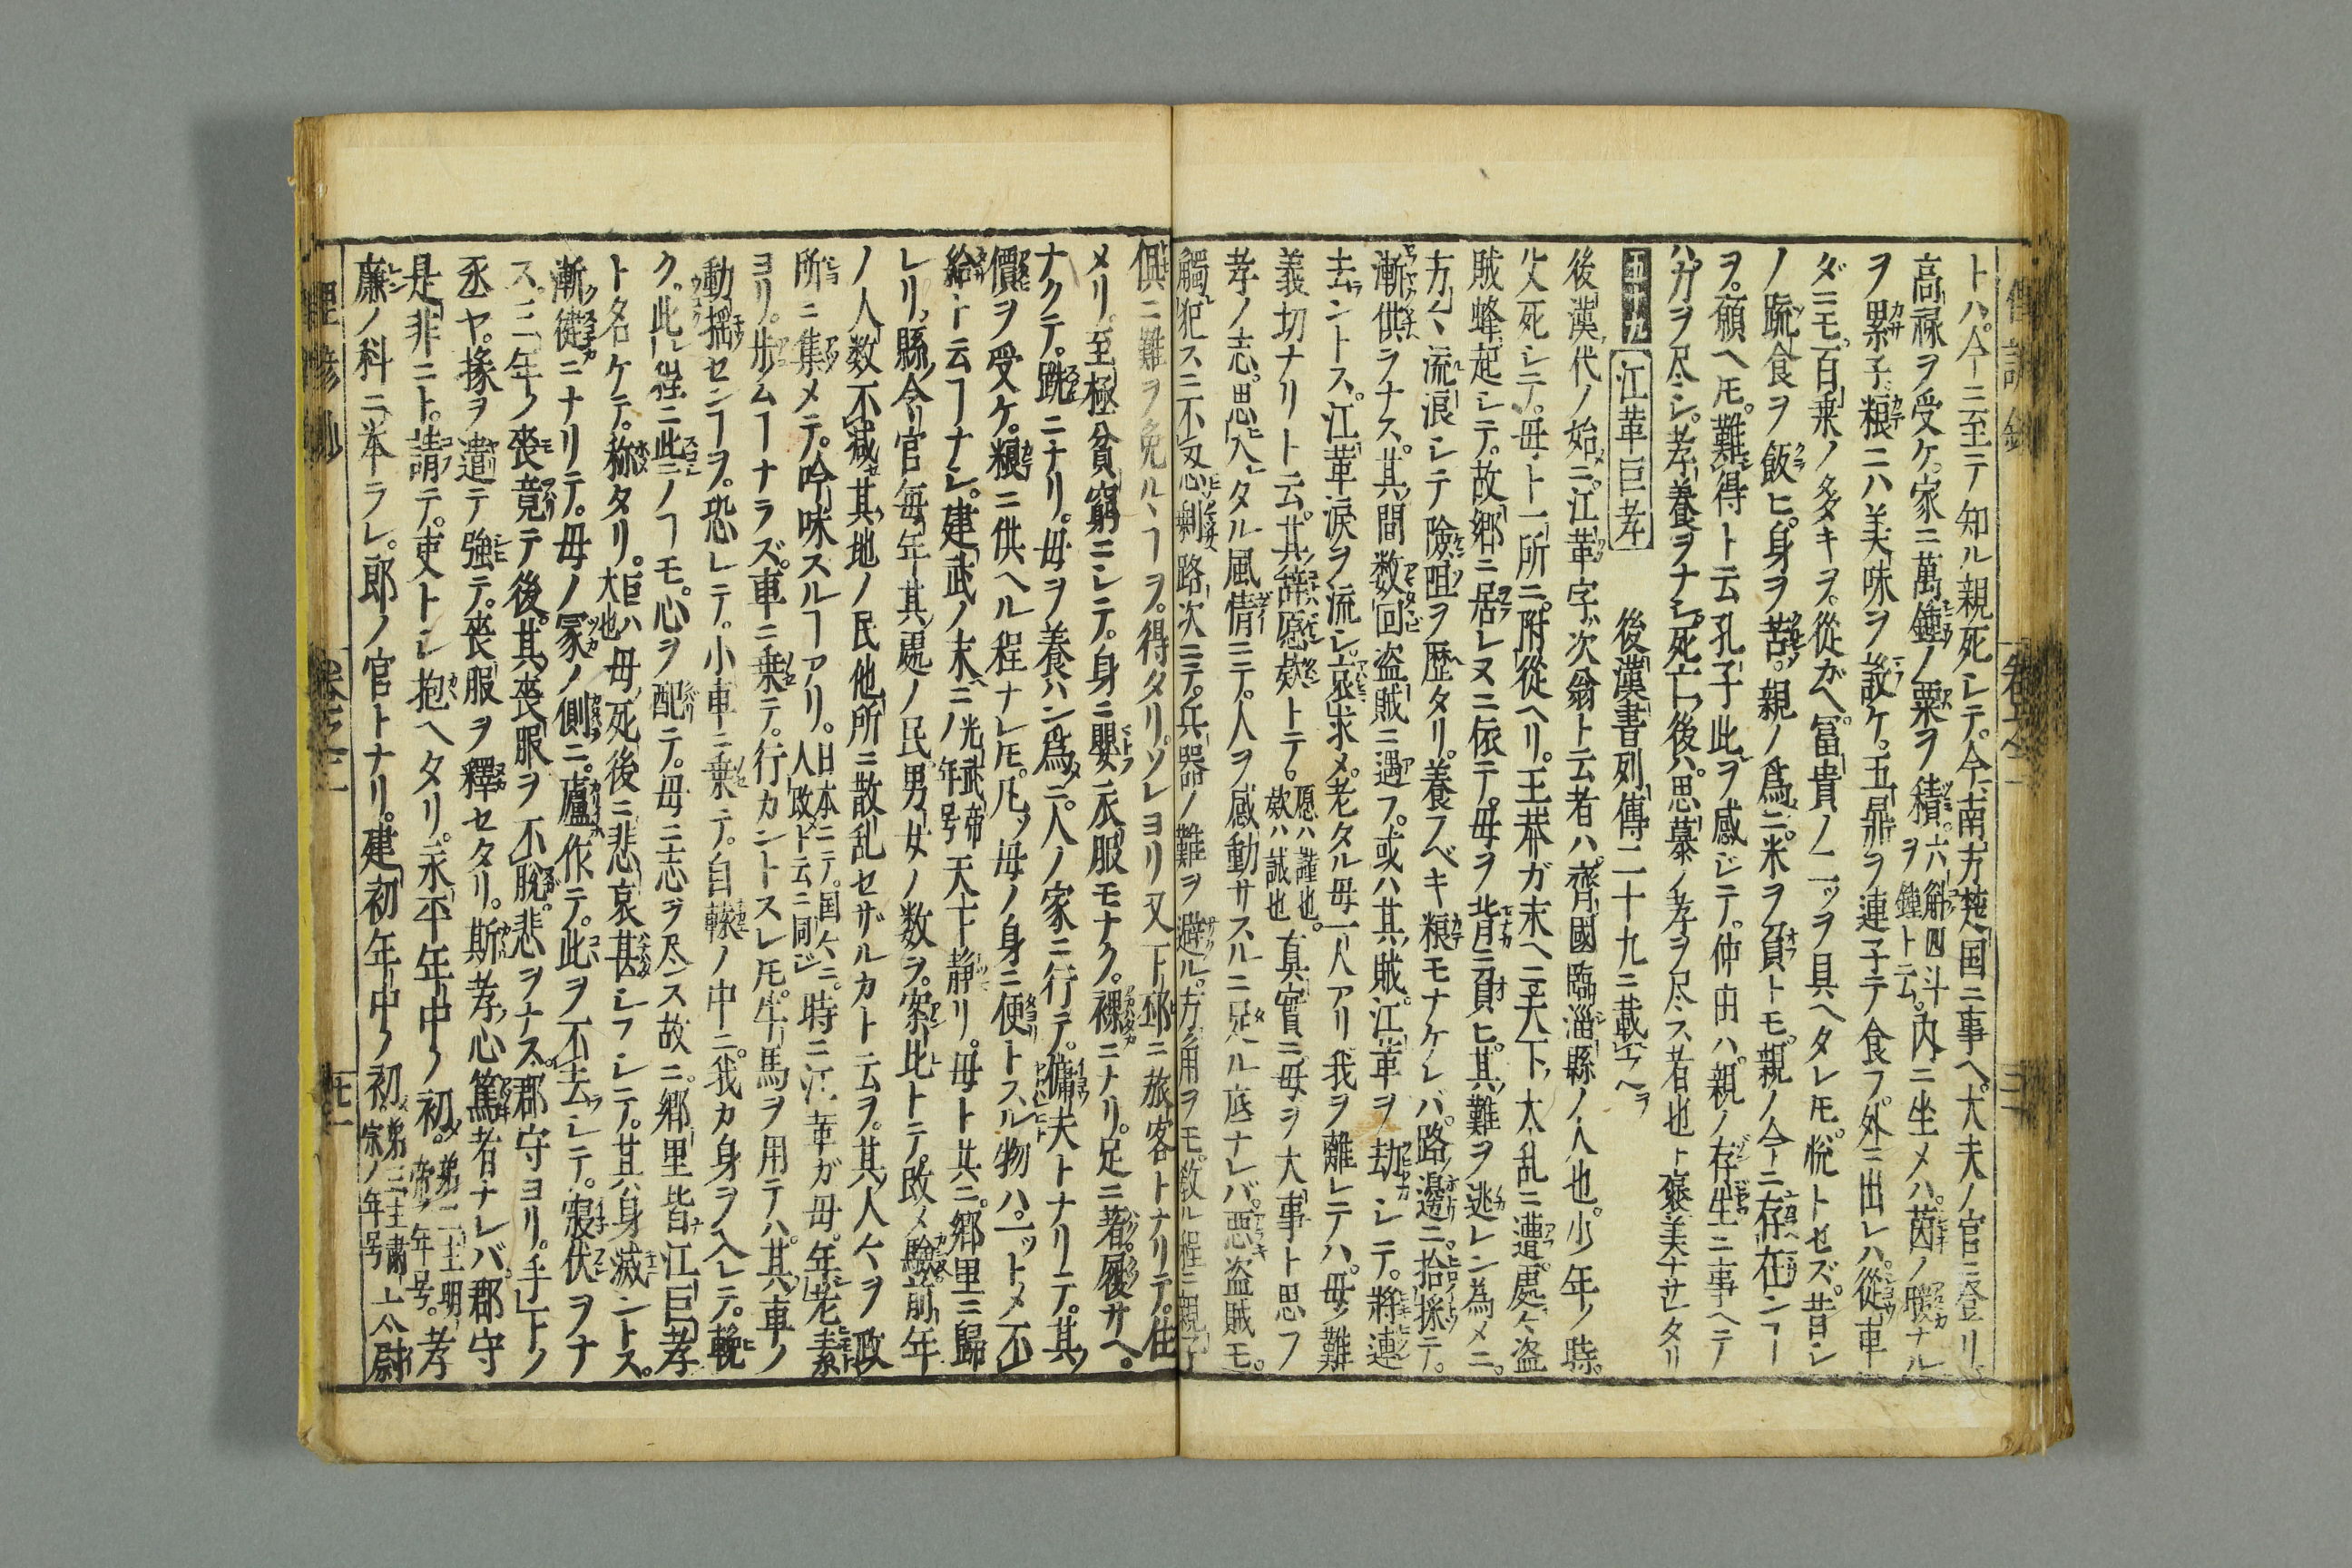 トハ今ニ至テ知ル親死シテ今南方楚国ニ事ヘ大夫ノ官ニ登リ
高禄ヲ受ケ家ニ萬鍾ノ粟ヲ積六斛四斗ヲ鍾ト云内ニ坐メハ茵ノ暖ナル
ヲ累子粮ニハ美味ヲ設ケ五鼎ヲ連子テ食フ外ニ出レハ從車
ダニモ百乗ノ多キヲ從ガヘ冨貴ノ二ッヲ具ヘタレ𪜈悦トセズ昔シ
ノ䟽食ヲ飯ヒ身ヲ苦親ノ爲ニ米ヲ負トモ親ノ今ニ存在ンヿ
ヲ願ヘ𪜈難得ト云孔子此ヲ感シテ仲由ハ親ノ存生ニ事ヘテ
ハ力ヲ尽シ孝養ヲナシ死亡後ハ思慕ノ孝ヲ尽ス者也ト褒美ナサレタリ
五十九 江革巨孝 後漢書列傳二十九ニ載タヘヲ
後漢代ノ始ニ江革字次翁ト云者ハ齊國臨淄縣ノ人也少年ノ時
父死シテ母ト一所ニ附從ヘリ王莽ガ末ヘニ天下大乱ニ遭處々盗
賊蜂起シテ故郷ニ居レヌニ依テ母ヲ背ニ負ヒ其難ヲ逃レン為メニ
方々流浪シテ險阻ヲ歴タリ養フベキ粮モナケレバ路邊ニ拾採テ
漸供ヲナス其間数回盗賊ニ遇フ或ハ其賊江革ヲ劫シテ將連
去ントス江革涙ヲ流シ哀求メ老タル母一人アリ我ヲ離レテハ母ノ難
義切ナリト云其辞愿欵トテ愿ハ謹也欵ハ誠也真實ニ母ヲ大事ト思フ
孝ノ志思入タル風情ニテ人ヲ感動サスルニ足ル底ナレバ悪盗賊モ
觸犯スニ不忍剰路次ニテ兵器ノ難ヲ避ル方角ヲモ敎ル程ニ親子
俱ニ難ヲ免ルヽヿヲ得タリソレヨリ又下邳ニ旅客トナリテ住
メリ至極貧窮ニシテ身ニ嬰衣服モナク裸ニナリ足ニ著履サヘ
ナクテ跣ニナリ母ヲ養ハン爲ニ人ノ家ニ行テ傭夫トナリテ其
價ヲ受ケ粮ニ供ヘル程ナレ𪜈凡ッ母ノ身ニ便トスル物ハ一ットメ不
給ト云フヿナシ建武ノ末ニノ光武帝年号天下静リ母ト共ニ郷里ニ歸
レリ縣令リ官毎年其處ノ民男女ノ数ヲ案比トテ改メ驗前年
ノ人数不减其地ノ民他所ニ散乱セザルカト云ヲ其人々ヲ政
所ニ集メテ吟味スルヿアリ日本ニテ国々ニ人改ト云ニ同ジ時ニ江革ガ母年老素
ヨリ歩ムヿナラズ車ニ乗テ行カントスレ𪜈牛馬ヲ用テハ其車ノ
動揺センヿヲ恐レテ小車ニ乗テ自轅ノ中ニ我カ身ヲ入レテ輓
ク此レ程ニ此ニノヿモ心ヲ配テ母ニ志ヲ尽ス故ニ郷里皆江巨孝
ト名ケテ称タリ巨ハ大也母死後ニ悲哀甚シフシテ其身滅ントス
漸徒ニナリテ母ノ冢ノ側ニ廬作テ此ヲ不去シテ寝伏ヲナ
ス三年ノ喪竟テ後其喪服ヲ不脱悲ヲナス郡守ヨリ手下ノ
丞ヤ掾ヲ遣テ強テ喪服ヲ釋セタリ斯孝心篤者ナレバ郡守
是非ニト請テ吏トシ抱ヘタリ永平年中ノ初第二主明帝ノ年号孝
廉ノ科ニ挙ラレ郎ノ官トナリ建初年中ノ初第三主肅宗ノ年号太尉